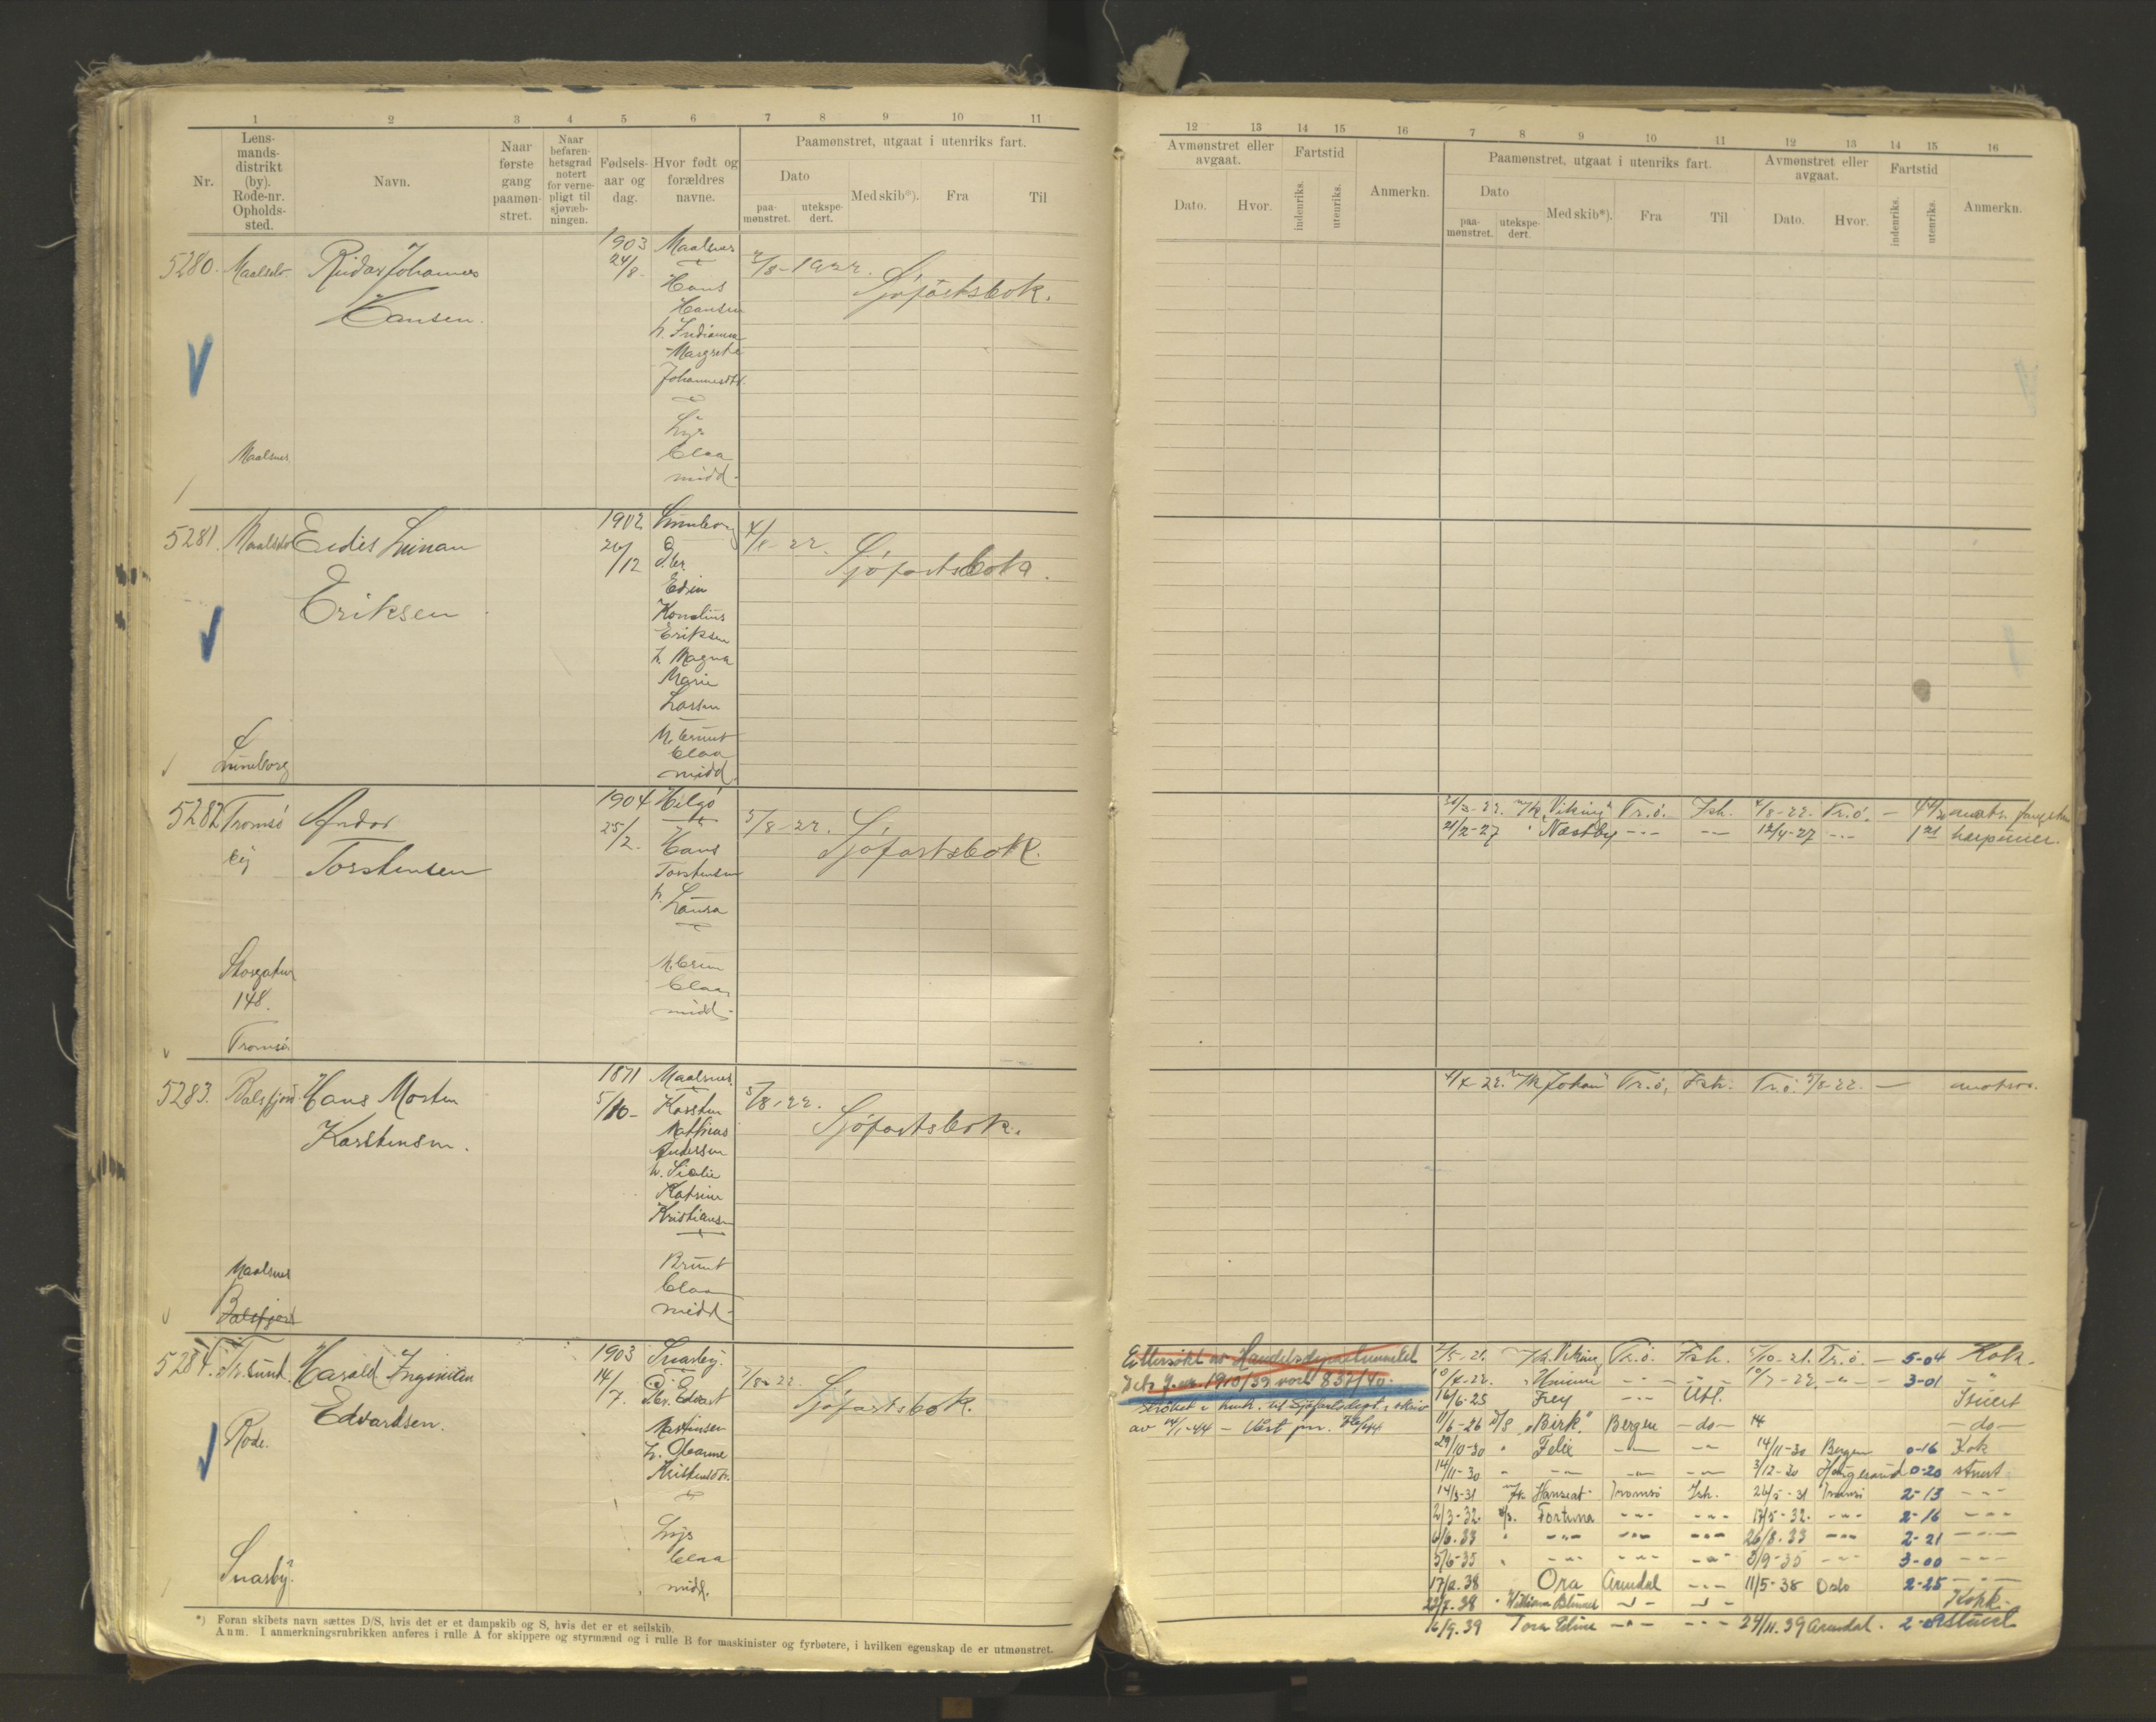 1 2 3 4 5 6 7 8 9 10 11
Nr.
Lens-
mands-
distrikt
(by).
Rode-nr.
Opholds-
sted.
Navn.
Naar
første
gang
paamøn-
stret.
Naar
befaren-
hetsgrad
notert
for verne-
pligt til
sjøvæb-
ningen.
Fødsels-
aar og
dag.
Hvor født og
forældres
navne.
Paamønstret, utgaat i utenriks fart.
Dato
paa-
mønstret.
utekspe-
dert.
Med skib*).
Fra
Til
5280. Maalselv. Reidar Johannes
Hansen.
1903
24/8-
Maalsnes
Hans
Hansen
h. Indianna
Margrete
Johannesdtr.
Lys
blaa
midd.
3/8-1922. Sjøfartsbok.
Maalsnes
5281. Maalselv Eidis Leinan
Eriksen
1902
26/12
Leneborg
Edin
Kornelius
Eriksen
h. Magna
Marie
Larsen
M. brunt
blaa
midd.
4/8-22. Sjøfartsbok.
Leneborg
5282 Tromsø Andor
by Torstensen
1904
25/2.
Helgø
Hans
Torstensen
h. Laura
M. brun
blaa
midd.
5/8-22. Sjøfartsbok.
Storgaten
148.
Tromsø.
5283. Balsfjord Hans Morten
Karstensen.
1871
5/10-
Maalsnes.
Karsten
Mathias
Andersen
h.
Katrine
Kristiansen
Brunt
blaa
midd.
5/8-22. Sjøfartsbok.
Maalsnes
Balsfjord
5284. Tr.sund. Harald
Edvardsen.
Rode.
1903
14/7.
Snarby.
Edvart
Martinsen
h.
Kristensdtr.
Lys
blaa
midd.
7/8-22. Sjøfartsbok.
Snarby.
*) Foran skibets navn sættes D/S, hvis det er et dampskib og S, hvis det er et seilskib.
Anm. I anmerkningsrubrikken anføres i rulle A for skippere og styrmænd og i rulle B for maskinister og fyrbøtere, i hvilken egenskap de er utmønstret.
12 13 14 15 16 7 8 9 10 11 12 13 14 15 16
Avmønstret eller
avgaat.
Dato.
Hvor.
Fartstid
indenriks.
utenriks.
Anmerkn.
Paamønstret, utgaat i utenriks fart.
Dato
paa-
mønstret.
utekspe-
dert.
Med skib*).
Fra
Til
Avmønstret eller
avgaat.
Dato.
Hvor.
Fartstid
indenriks.
utenriks.
Anmerkn.
30/3-22. M/K "Viking" Tr.ø. Ish. 4/8-22. Tr.ø. —
21/2-27 " Næstby -"- -"- 12/4-27 -"- 1 21 harpuner.
4/4-22. M/K Johan Tr.ø. Ish. Tr.ø. 5/8-22. — matros.
Ettersøkt av Handelsdepartementet
1910/39 vort 837/40.
2/5-21. M/K. Viking Tr.ø. Ish. 5/10-21. Tr.ø. — 5-04 Kok.
3-01 -"-
av 14/1-44 -
16/6-25 Frey -"- Utl. Stuert
11/6-26 D/S "Birk". Bergen -do- 14 -do-
29/10-30 " Felix -"- -"- 14/11-30 Bergen 0-16 Kok
14/11-30 " -"- -"- -"- 3/12-30 Haugesund 0-20 stuert.
14/3-31 M/K Hanseat Tromsø Ish. 26/5-31 Tromsø 2-13 -"-
2/3-32. Fortuna -"- -"- 17/5-32. -"- 2-16 -"-
6/6.33 " -"- -"- -"- 26/8.33 -"- 2-21 -"-
5/6-35 " -"- -"- -"- 5/9-35 -"- 3-00 -"-
17/2.38 Ora Arendal -"- 11/5-38 Oslo 2-25 -"-
23/7.38 " William Blumer -"- -"- Kokk.
16/9.39 Tora Elise -"- -"- 24/11.39 Arendal. stuert